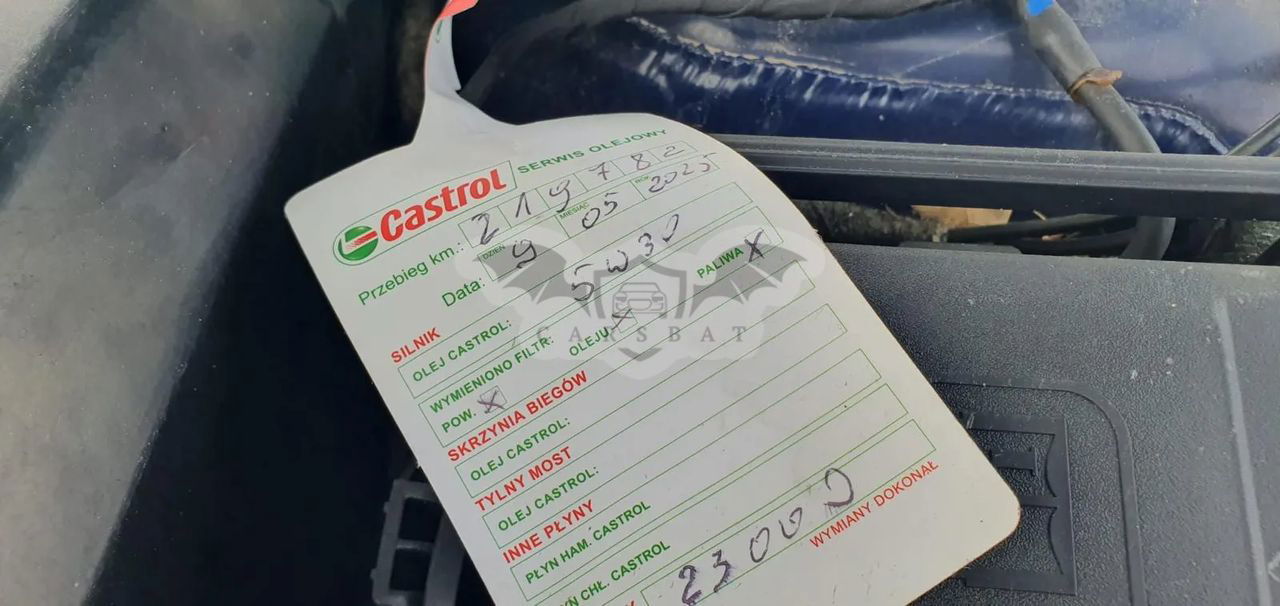 Castrol SERWIS OLEJOWY
Przebieg km.: 2 1 9 7 8 2
Data: DZIEŃ 9 MIESIĄC 05 ROK 2025
SILNIK
OLEJ CASTROL: 5W30
WYMIENIONO FILTR: OLEJU X PALIWA X
POW. X
SKRZYNIA BIEGÓW
OLEJ CASTROL:
TYLNY MOST
OLEJ CASTROL:
INNE PŁYNY
PŁYN HAM. CASTROL
YN CHŁ. CASTROL
23000
WYMIANY DOKONAŁ
CARSBAT